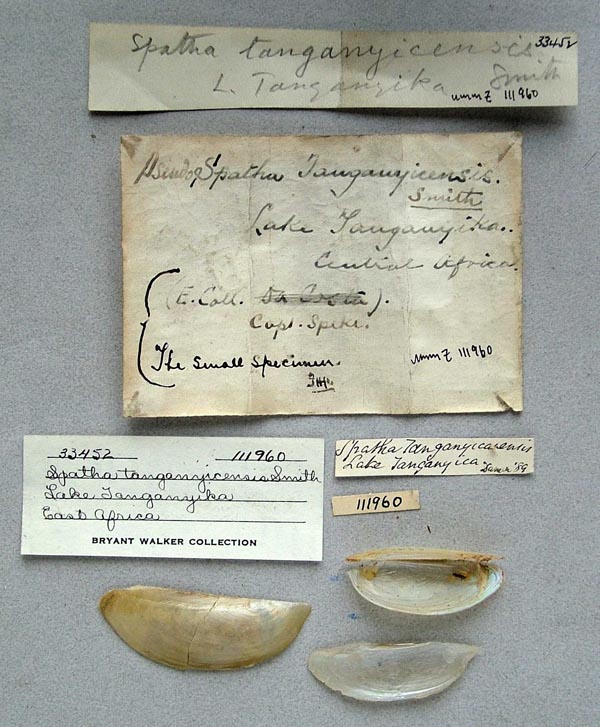 Spatha tanganyicensis 33452
L. Tanganyika Smith
UMMZ 111960
PseudoSpatha Tanganyicensis.
Smith
Lake Tanganyika.
Central Africa.
(E. Coll. Da Costa).
Capt. Speke.
The small specimen.
UMMZ 111960
33452 111960
Spatha tanganyicensis Smith
Lake Tanganyika
East Africa
BRYANT WALKER COLLECTION
Spatha Tanganyicensis
Lake Tanganyica
111960